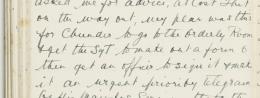 asked me for advice, at last I hit
on the way out, my plan was this
for Chunder to go to the Orderly Room
& get the Sgt to make out a form 6
then get an officer to sign it & mark
it an urgent priority telegram